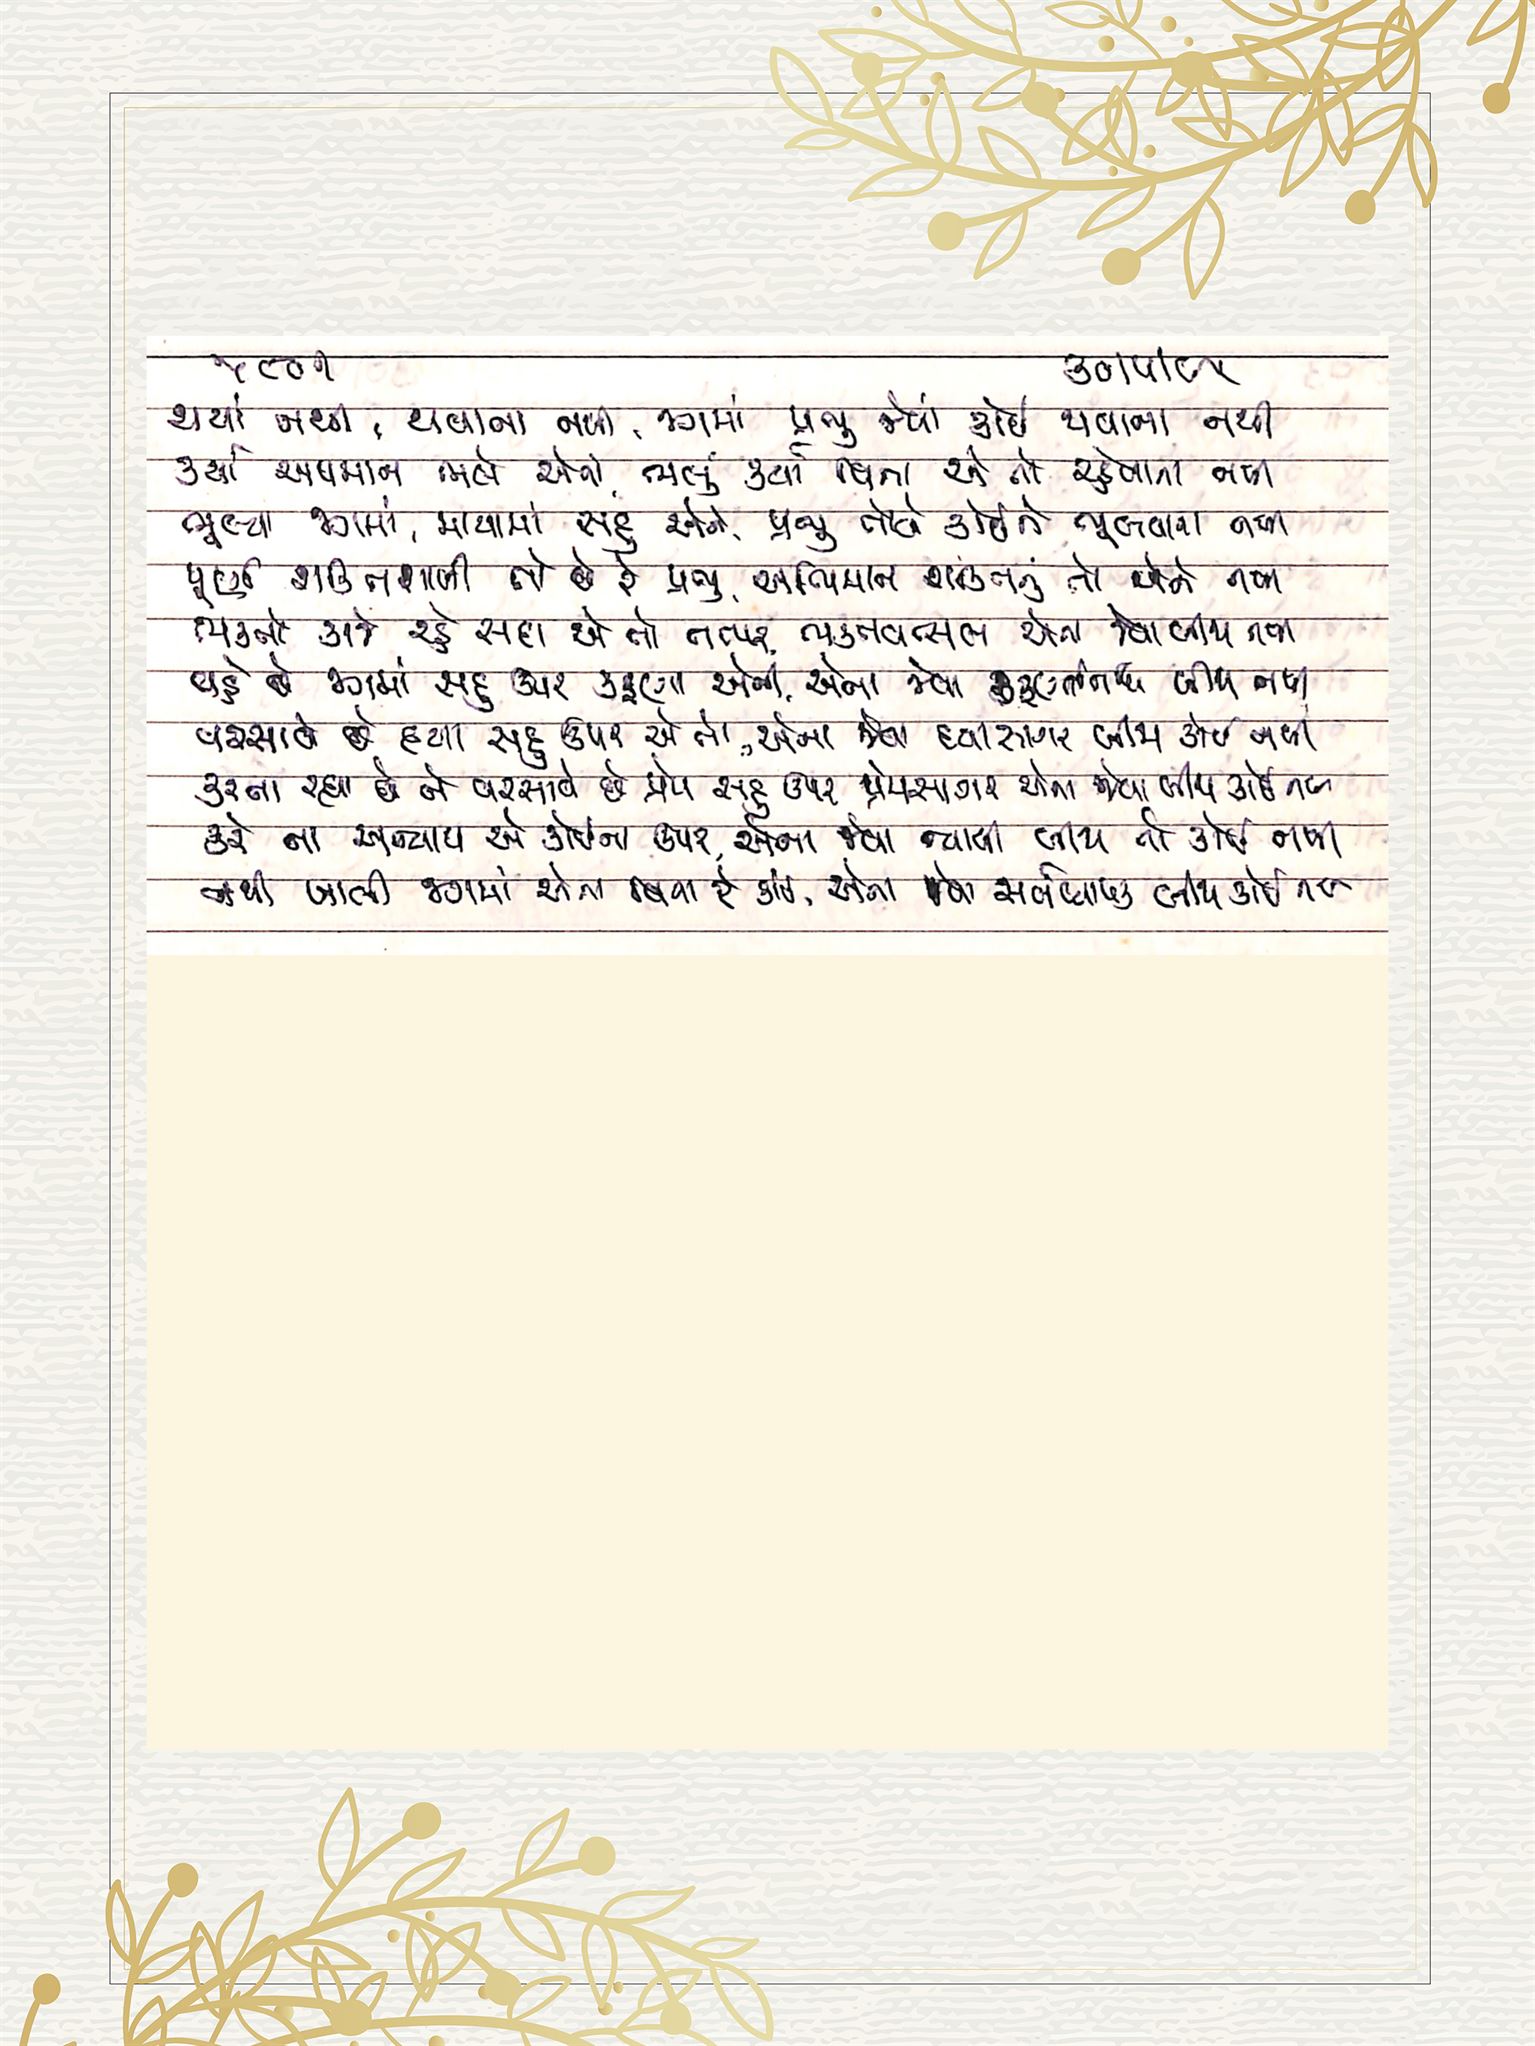 ૫૯૦૧
થયાં નથી, થવાના નથી, જગમાં પ્રભુ જેવાં કોઈ થવાના નથી
કર્યા અપમાન ભલે એને, ભલું કર્યા વિના એ તો રહેવાના નથી
ભૂલ્યા જગમાં, માયામાં સહુ એને, પ્રભુ તોયે કોઈને ભૂલવાના નથી
પૂર્ણ શક્તિશાળી તો છે રે પ્રભુ, અભિમાન શક્તિનું તો એને નથી
ભક્તો કાજે રહે સદા એ તો તત્પર, ભક્તવત્સલ એના જેવા બીજા નથી
વહે છે જગમાં સહુ ઉપર કરૂણા એની, એના જેવા કરૂણાનિધિ બીજા નથી
વરસાવે છે દયા સહુ ઉપર એ તો, એના જેવા દયાસાગર બીજા કોઈ નથી
કરતા રહ્યા છે ને વરસાવે છે પ્રેમ સહુ ઉપર પ્રેમસાગર એના જેવા બીજા કોઈ નથી
કરે ના અન્યાય એ કોઈના ઉપર, એના જેવા ન્યાયી બીજા તો કોઈ નથી
નથી ખાલી જગમાં એના વિના રે કાંઈ, એના જેવા સર્વવ્યાપક બીજા કોઈ નથી